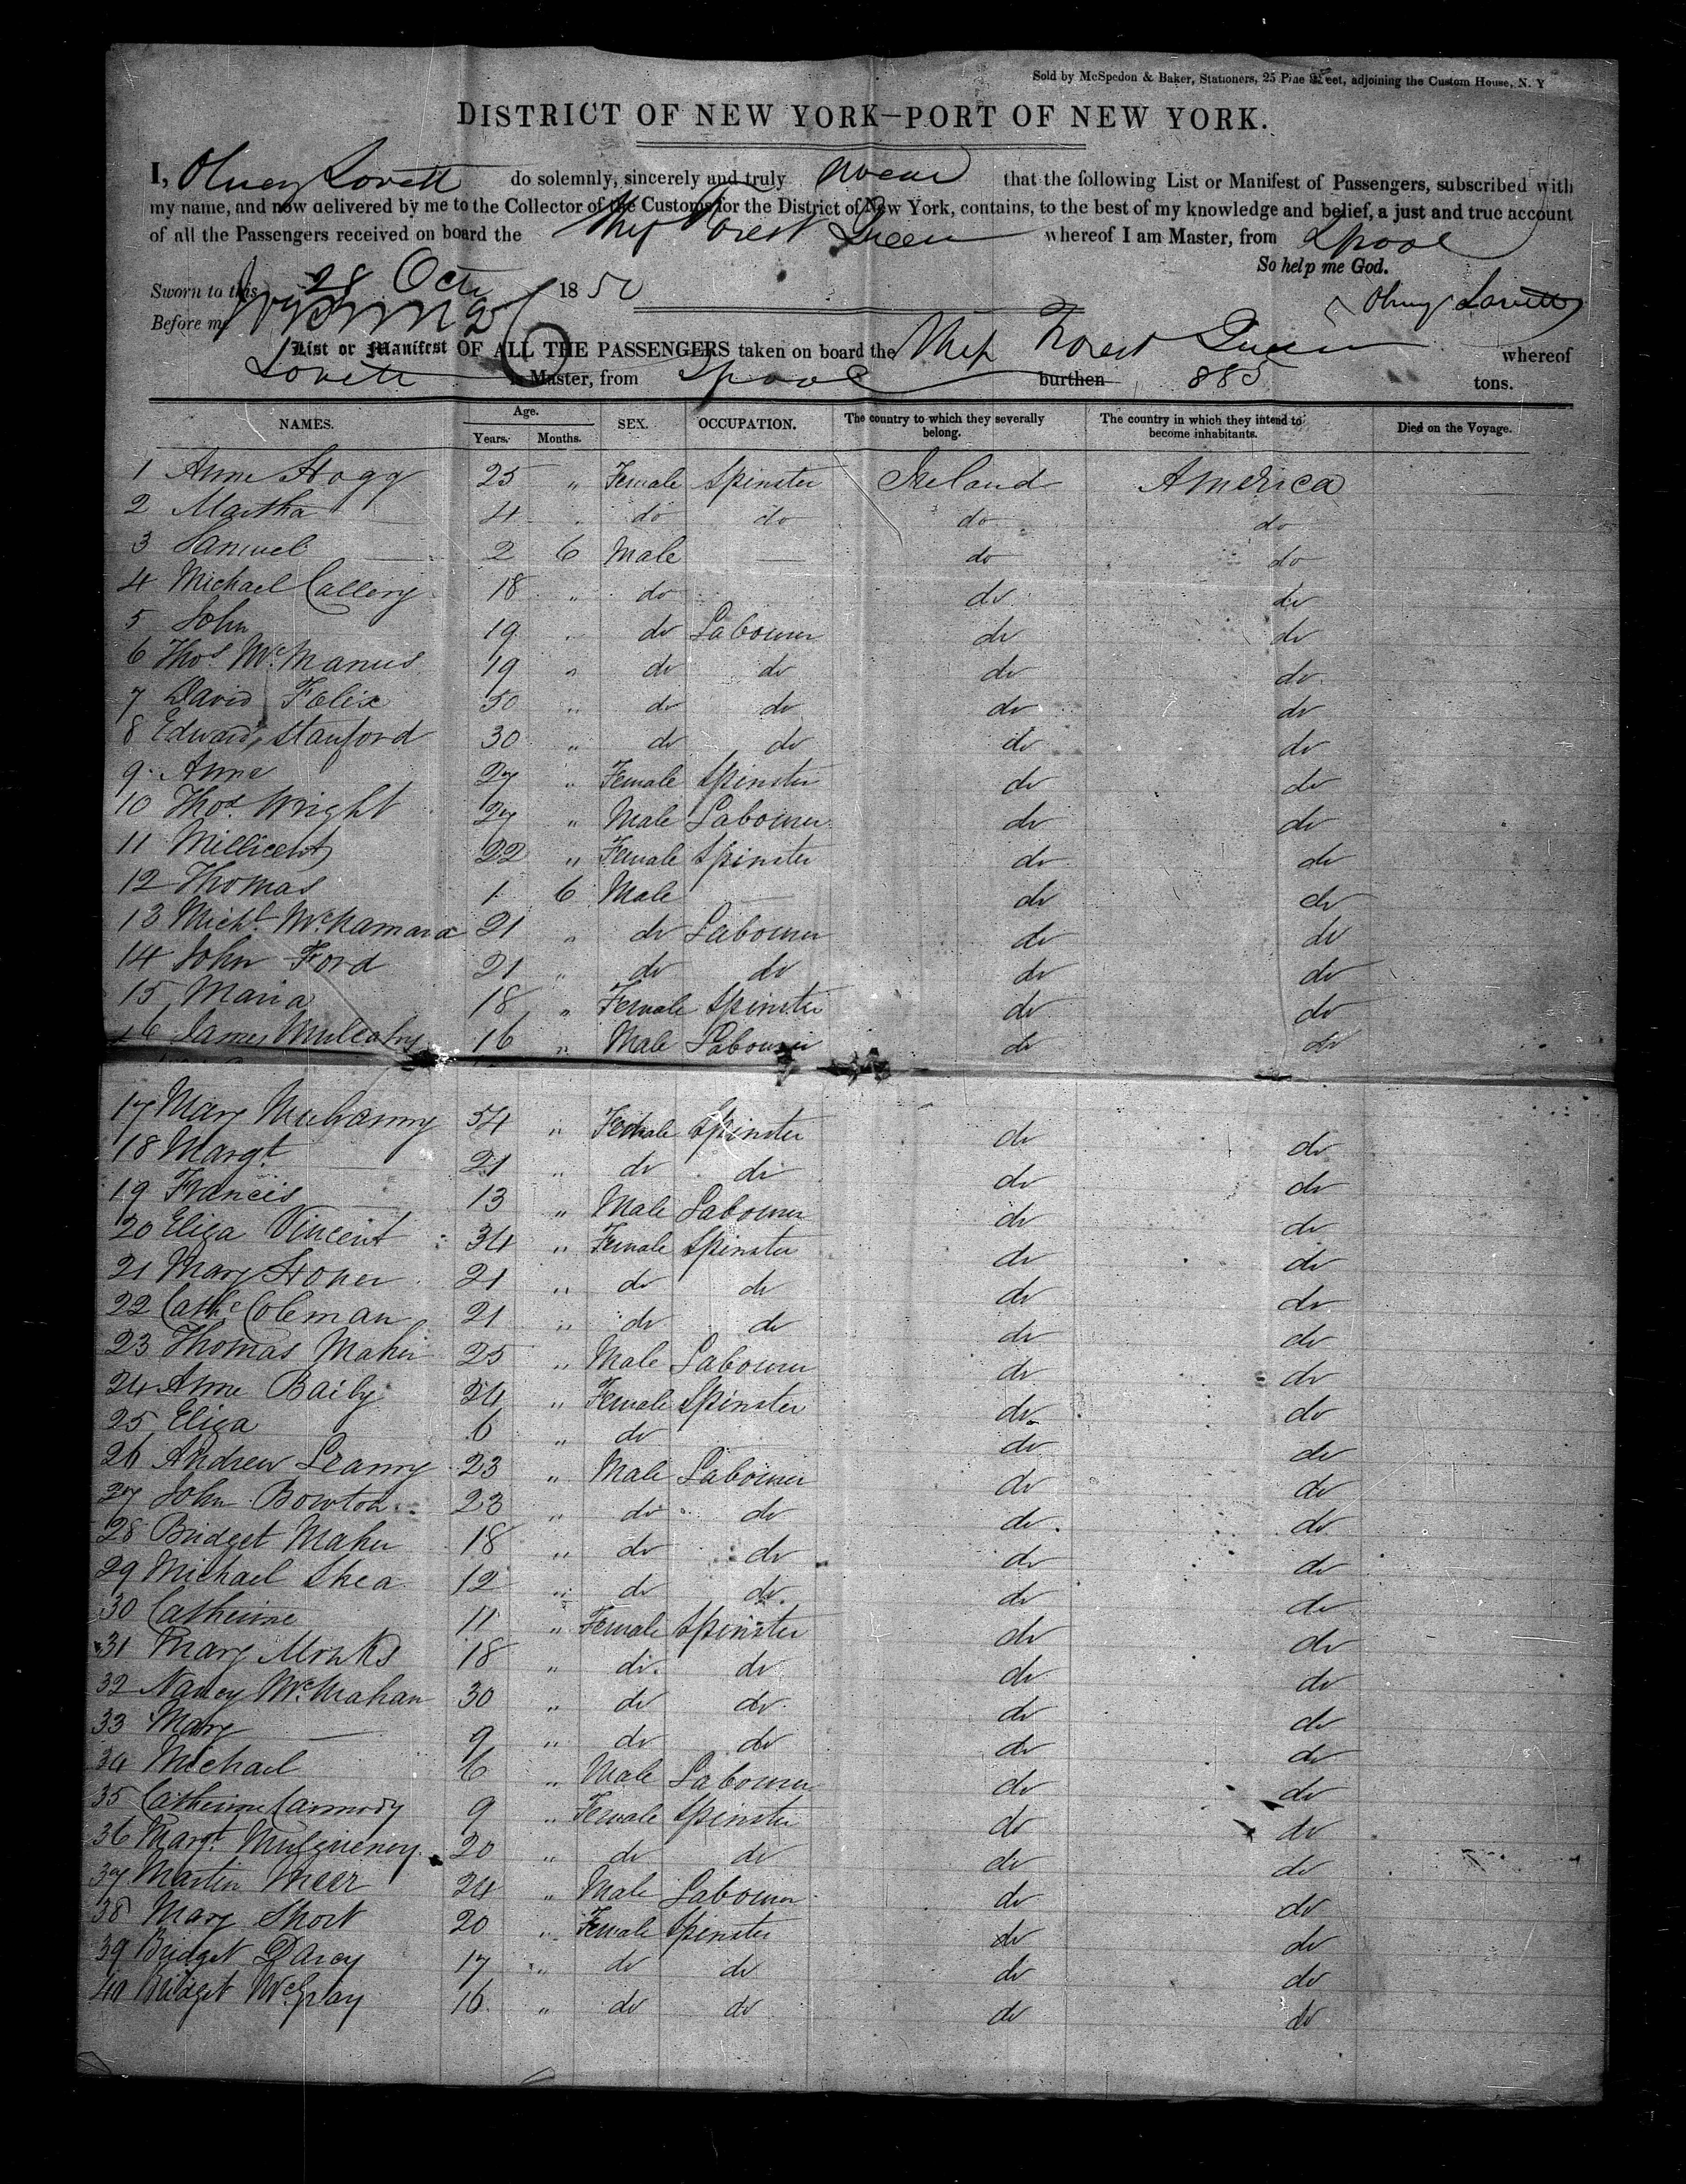 Sold by McSpedon & Baker, Stationers, 25 Pine Street, adjoining the Custom House, N. Y
DISTRICT OF NEW YORK—PORT OF NEW YORK.
I, Olney Lovett do solemnly, sincerely and truly swear that the following List or Manifest of Passengers, subscribed with
my name, and now delivered by me to the Collector of the Customs for the District of New York, contains, to the best of my knowledge and belief, a just and true account
of all the Passengers received on board the Ship Forest Queen whereof I am Master, from Lpool
So help me God.
Sworn to this 28 Oct 1850
Olney Lovett
Before me
List or Manifest OF ALL THE PASSENGERS taken on board the Ship Forest Queen whereof
Lovett is Master, from Lpool burthen 885 tons.
NAMES. Age. Years. Months. SEX. OCCUPATION. The country to which they severally belong. The country in which they intend to become inhabitants. Died on the Voyage.
1 Anne Hogg 25 " Female Spinster Ireland America
2 Martha 4 " do do do do
3 Samuel 2 6 Male — do do
4 Michael Callery 18 " do do do
5 John 19 " do Labourer do do
6 Thos McManus 19 " do do do do
7 David Felix 50 " do do do do
8 Edward Stanford 30 " do do do do
9 Anne 27 " Female Spinster do do
10 Thos Wright 27 " Male Labourer do do
11 Millicent 22 " Female Spinster do do
12 Thomas 1 6 Male — do do
13 Michl McNamara 21 " do Labourer do do
14 John Ford 21 " do do do do
15 Maria 18 " Female Spinster do do
16 James Mulcahy 16 " Male Labourer do do
17 Mary 54 " Female Spinster do do
18 Margt 21 " do do do do
19 Francis 13 " Male Labourer do do
20 Eliza Vincent 34 " Female Spinster do do
21 Mary 21 " do do do do
22 Cathe Coleman 21 " do do do do
23 Thomas Maher 25 " Male Labourer do do
24 Anne Baily 24 " Female Spinster do do
25 Eliza 6 " do do do
26 Andrew 23 " Male Labourer do do
27 John Bowton 23 " do do do do
28 Bridget Maher 18 " do do do do
29 Michael Shea 12 " do do do do
30 Catherine 11 " Female Spinster do do
31 Mary Monks 18 " do do do do
32 Nancy McMahan 30 " do do do do
33 Mary 9 " do do do do
34 Michael 6 " Male Labourer do do
35 Catherine Carmody 9 " Female Spinster do do
36 Margt 20 " do do do do
37 Martin Meer 24 " Male Labourer do do
38 Mary Short 20 " Female Spinster do do
39 Bridget Darcy 17 " do do do do
40 Bridget McGray 16 " do do do do